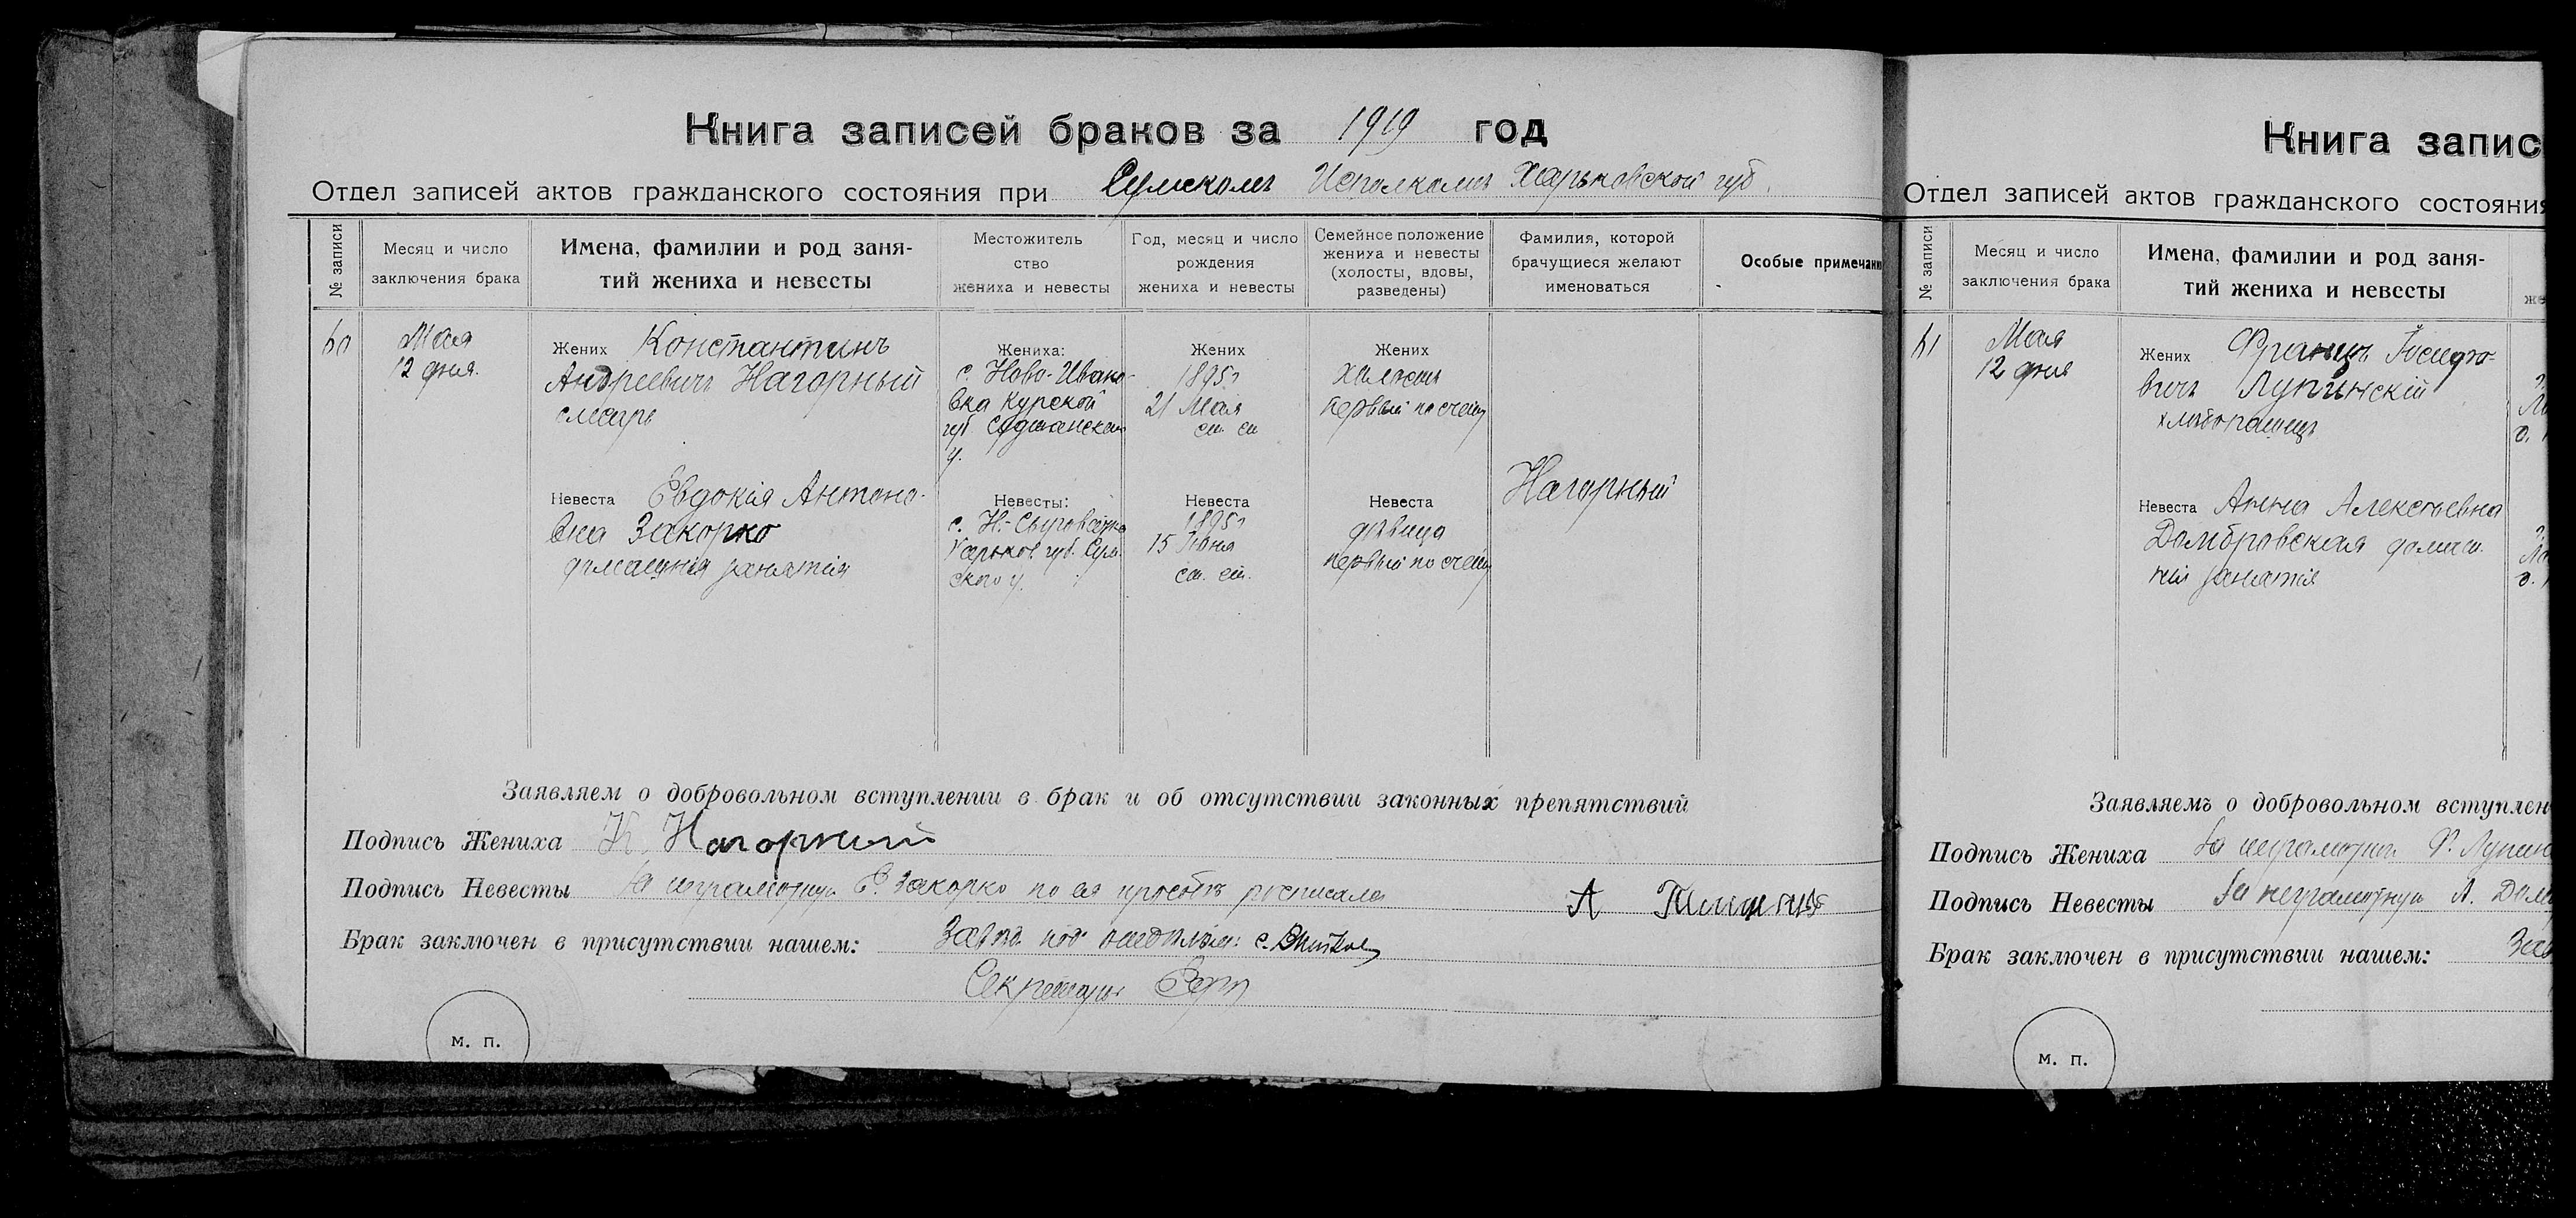 Книга записей браков за 1919 год
Отдел записей актов гражданского состояния при Сумскомъ Исполкомъ Харьковской губ.
№ записи
Месяц и число
заключения брака
Имена, фамилии и род заня-
тий жениха и невесты
Местожитель
ство
жениха и невесты
Год, месяц и число
рождения
жениха и невесты
Семейное положение
жениха и невесты
(холосты, вдовы,
разведены)
Фамилия, которой
брачущиеся желают
именоваться
Особые примечани
60
Мая
12 дня.
Жених Константинъ
Андреевичъ Нагорный
слесарь
Жениха:
с. Ново-Ивано-
вка Курской
губ. Суджанскаго
у.
Жених
1895 г
21 Мая
ст. ст
Жених
холостъ
первый по счету
Невеста Евдокія Антоно-
вна Закорко
домашнія занятія
Невесты:
с. Н.-Сыроватка
Харьков. губ. Сум-
ского у.
Невеста
1895 г
15 Іюня
ст. ст.
Невеста
дѣвица
первый по счету
Нагорный
Заявляем о добровольном вступлении в брак и об отсутствии законных препятствий
Подпись Жениха К. Нагорный
Подпись Невесты За неграмотную Е. Закорко по ея просьбѣ росписался А
Брак заключен в присутствии нашем: Завѣд. под
Секретарь
м. п.
Книга запис
Отдел записей актов гражданского состояния
№ записи
Месяц и число
заключения брака
Имена, фамилии и род заня-
тий жениха и невесты
же
61
Мая
12 дня
Жених Францъ Іосифо-
вичъ Лупинскій
хлѣбопашецъ
Невеста Анна Алексѣевна
Домбровская домаш-
нія занятія
Заявляемъ о добровольном вступлен
Подпись Жениха За неграмотнаго Ф. Лупин
Подпись Невесты За неграмотную А. Дом
Брак заключен в присутствии нашем: Зав
м. п.